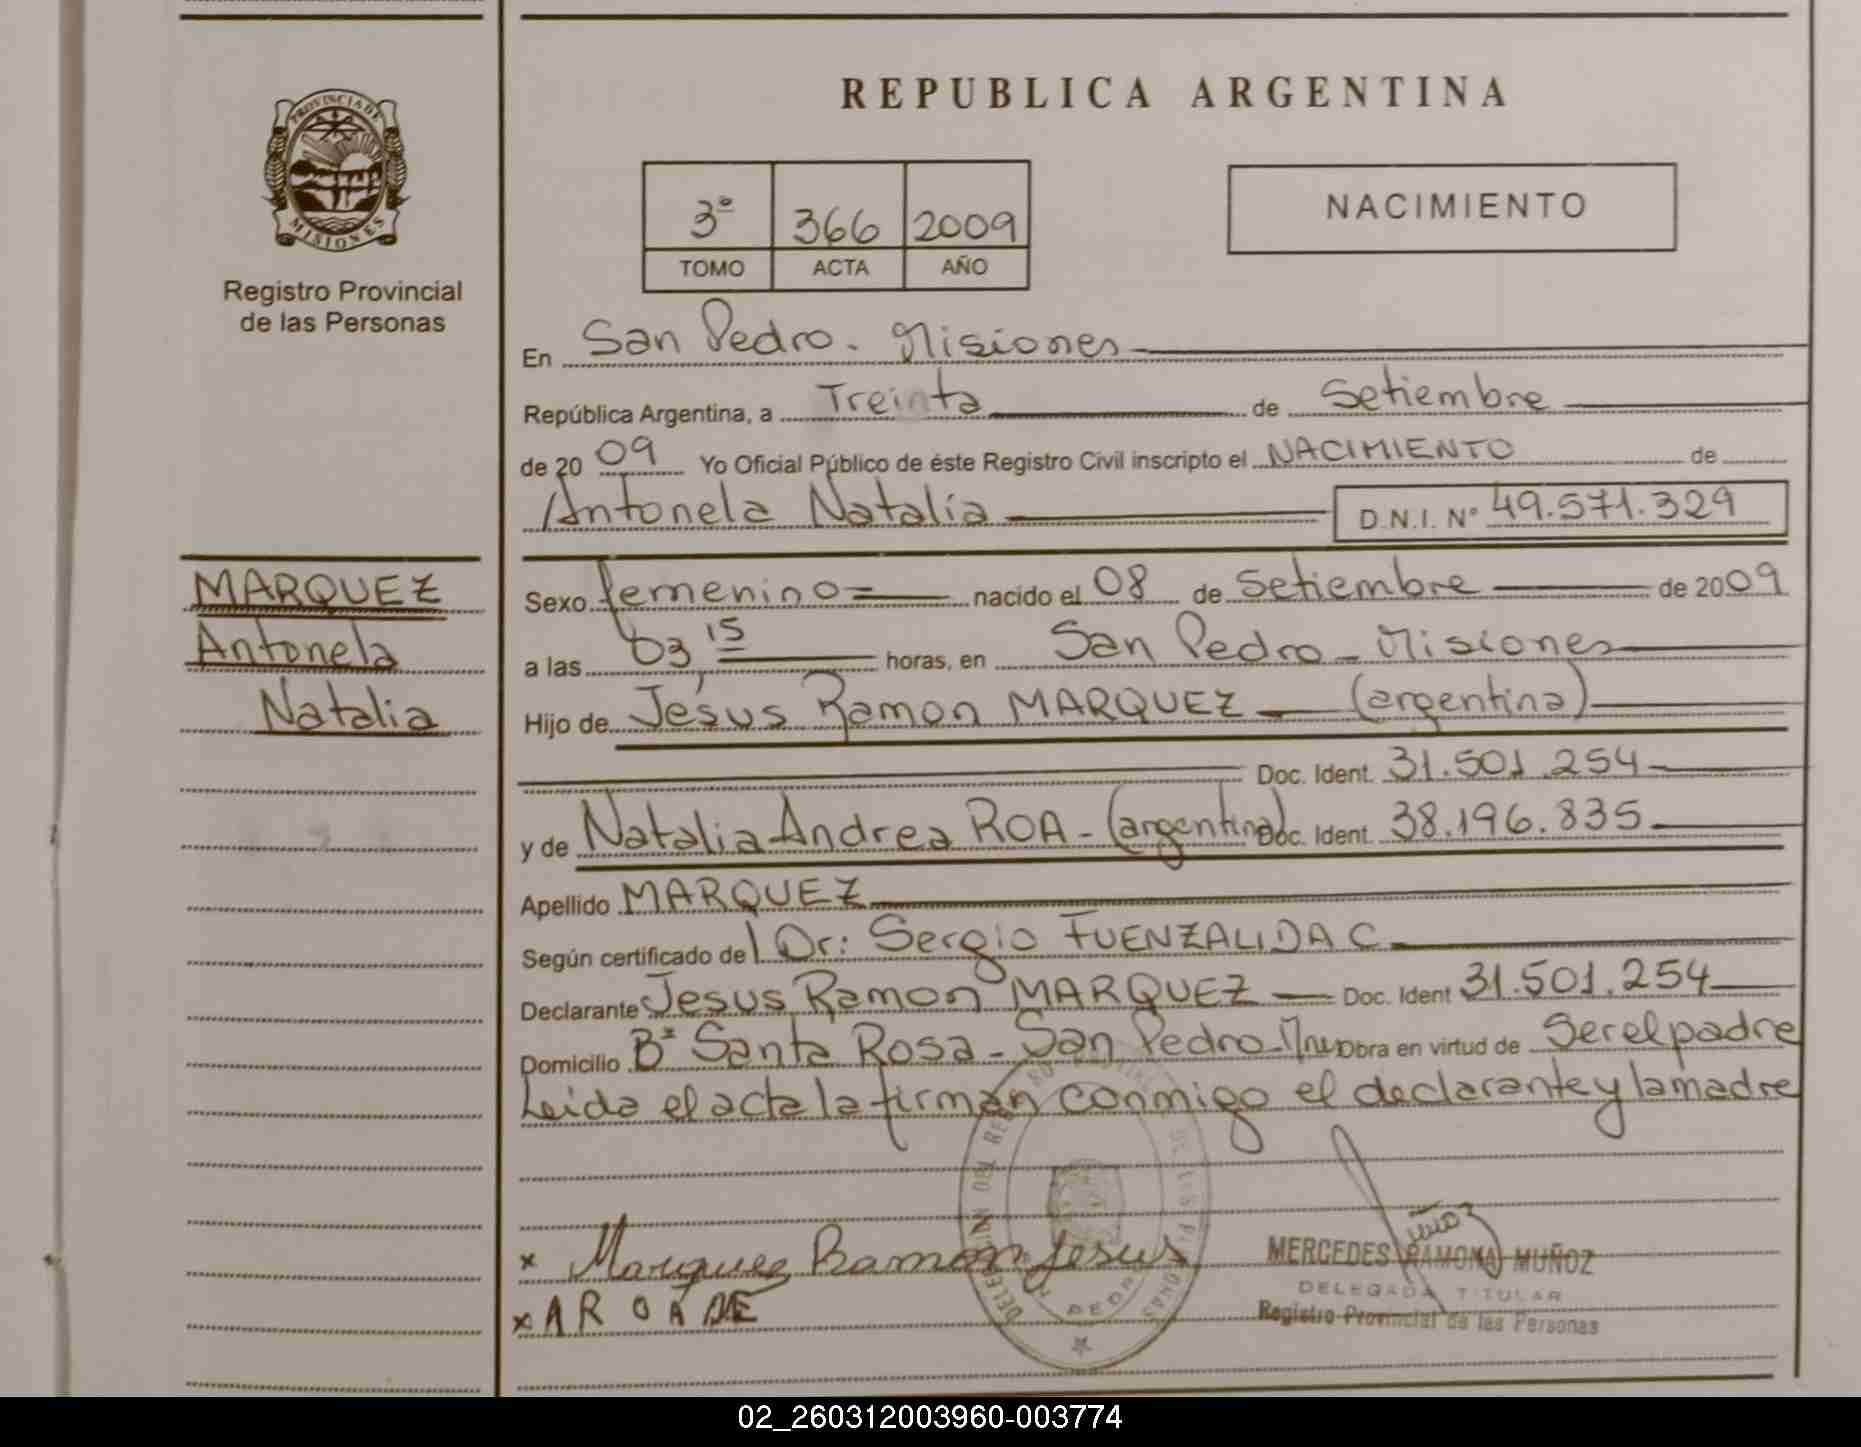 REPUBLICA ARGENTINA
PROVINCIA DE
MISIONES
Registro Provincial
de las Personas
3º 366 2009
TOMO ACTA AÑO
NACIMIENTO
En San Pedro. Misiones
República Argentina, a Treinta de Setiembre
de 2009 Yo Oficial Público de éste Registro Civil inscripto el NACIMIENTO de
Antonela Natalia D.N.I. Nº 49.571.329
MARQUEZ
Antonela
Natalia
Sexo femenino nacido el 08 de Setiembre de 2009
a las 03 15 horas, en San Pedro - Misiones
Hijo de Jesús Ramon MARQUEZ (argentina)
Doc. Ident. 31.501.254
y de Natalia Andrea ROA - (argentina) Doc. Ident. 38.196.835
Apellido MARQUEZ
Según certificado del Dr: Sergio FUENZALIDA C
Declarante Jesus Ramon MARQUEZ Doc. Ident 31.501.254
Domicilio Bº Santa Rosa - San Pedro - Obra en virtud de Ser el padre
Leida el acta la firman conmigo el declarante y la madre
x Marquez Ramon Jesus
x A R O A
MERCEDES RAMONA MUÑOZ
DELEGADA TITULAR
Registro Provincial de las Personas
02_260312003960-003774